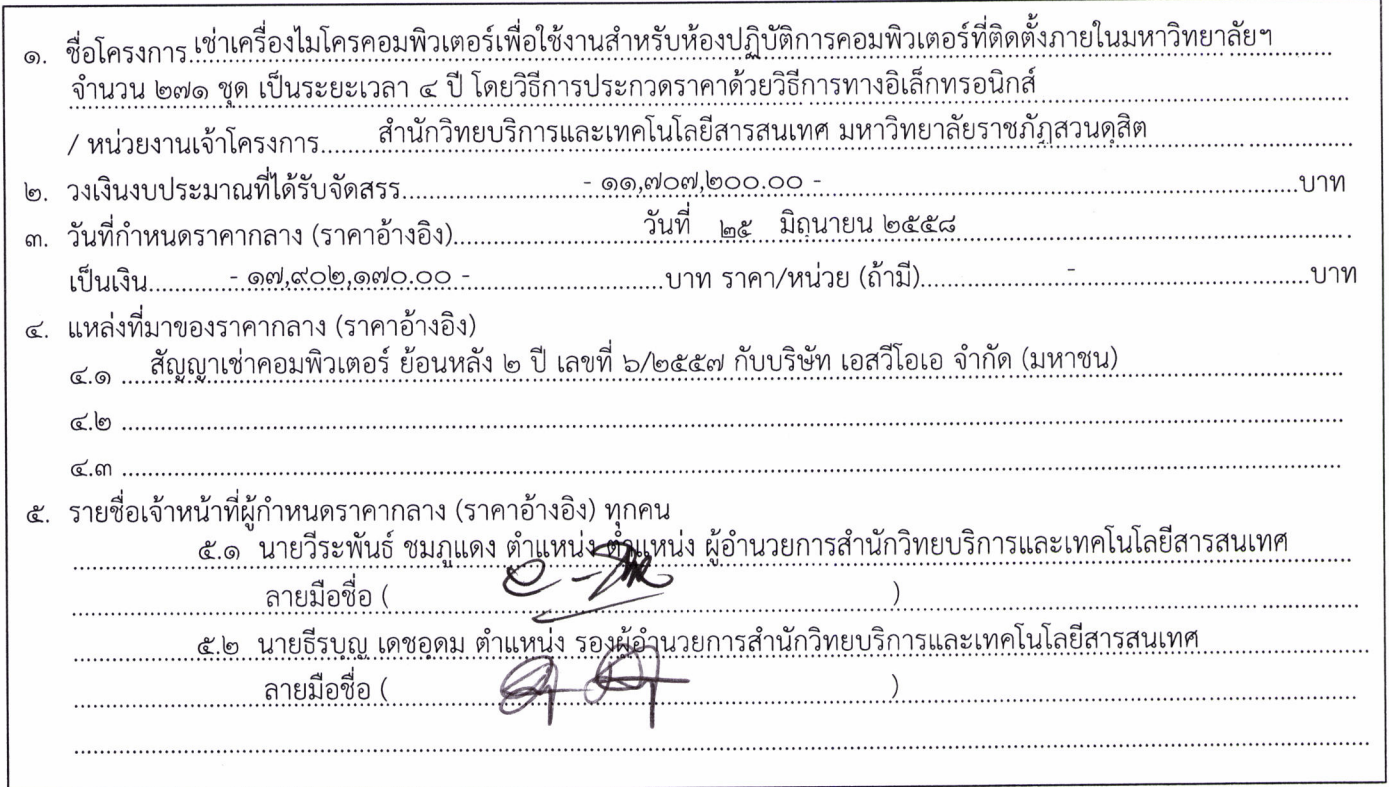 ๑. ชื่อโครงการ เช่าเครื่องไมโครคอมพิวเตอร์เพื่อใช้งานสำหรับห้องปฏิบัติการคอมพิวเตอร์ที่ติดตั้งภายในมหาวิทยาลัยฯ
จำนวน ๒๗๑ ชุด เป็นระยะเวลา ๔ ปี โดยวิธีการประกวดราคาด้วยวิธีการทางอิเล็กทรอนิกส์
/ หน่วยงานเจ้าโครงการ......สำนักวิทยบริการและเทคโนโลยีสารสนเทศ มหาวิทยาลัยราชภัฏสวนดุสิต
๒. วงเงินงบประมาณที่ได้รับจัดสรร...... - ๑๑,๗๐๗,๒๐๐.๐๐ - ......บาท
๓. วันที่กำหนดราคากลาง (ราคาอ้างอิง)...... วันที่ ๒๕ มิถุนายน ๒๕๕๘
เป็นเงิน...... - ๑๗,๙๐๒,๑๗๐.๐๐ - ......บาท ราคา/หน่วย (ถ้ามี)...... - ......บาท
๔. แหล่งที่มาของราคากลาง (ราคาอ้างอิง)
๔.๑ สัญญาเช่าคอมพิวเตอร์ ย้อนหลัง ๒ ปี เลขที่ ๖/๒๕๕๗ กับบริษัท เอสวีโอเอ จำกัด (มหาชน)
๔.๒ ......
๔.๓ ......
๕. รายชื่อเจ้าหน้าที่ผู้กำหนดราคากลาง (ราคาอ้างอิง) ทุกคน
๕.๑ นายวีระพันธ์ ชมภูแดง ตำแหน่ง ตำแหน่ง ผู้อำนวยการสำนักวิทยบริการและเทคโนโลยีสารสนเทศ
ลายมือชื่อ ( )
๕.๒ นายธีรบุญ เดชอุดม ตำแหน่ง รองผู้อำนวยการสำนักวิทยบริการและเทคโนโลยีสารสนเทศ
ลายมือชื่อ ( )